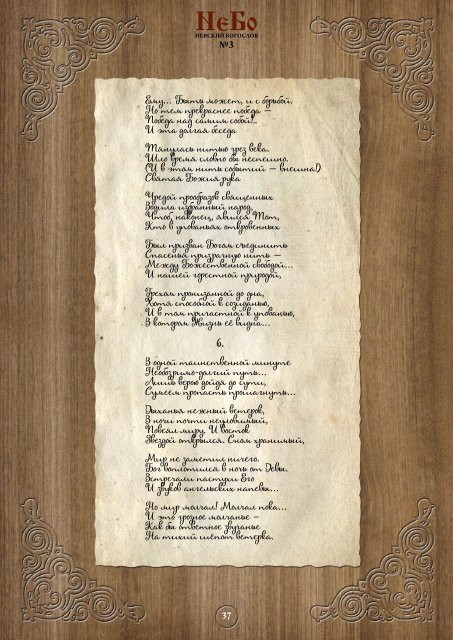 НеБо
НЕВСКИЙ БОГОСЛОВ
№3
Ему... Быть может, и с борьбой.
Но тем прекраснее победа –
Победа над самим собой!..
И эта долгая беседа
Тянулась нитью чрез века.
Шло время словно бы неспешно.
(И в этом нить событий – внешна!)
Святая Божия рука
Чредой прообразов священных
Водила избранный народ,
Чтоб, наконец, явился Тот,
Кто в упованьях откровенных
Был призван Богом съединить
Спасенья призрачную нить –
Между Божественной свободой...
И нашей горестной природой,
Грехом пронизанной до дна,
Хотя способной к созиданью,
И в том причастной к упованью,
В котором Жизнь её видна...
6.
В одной таинственной минуте
Необозримо-долгий путь...
Лишь верою дойдя до сути,
Сумеем пропасть прошагнуть...
Дыханья нежный ветерок,
В ночи почти неуловимый,
Повеял миру. И Восток
Звездой открылся. Сном хранимый,
Мир не заметил ничего.
Бог воплотился в ночь от Девы.
Встречали пастухи Его
И звуков ангельских напевы...
Но мир молчал! Молчал пока...
И это грозное молчанье –
Как бы ответное
На тихий шёпот ветерка.
37